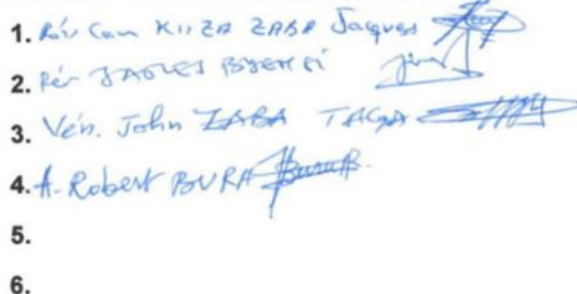 1. Rév Can KIIZA ZABA Jacques
2. Rév
3. Vén. John ZABA TAGA
4. A. Robert BURA
5.
6.